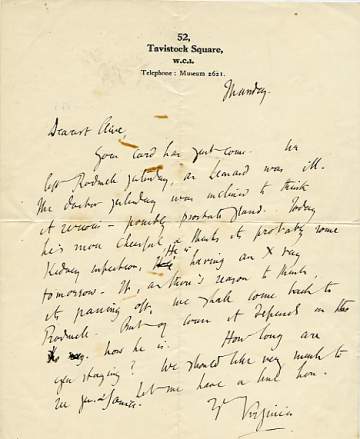 52,
Tavistock Square,
W.C.1.
Telephone : Museum 2621.
Monday.
Dearest Clive,
Your card has just come. We
left Rodmell yesterday, as Leonard was ill.
The doctor yesterday was inclined to think
it serious - possibly prostate gland. Today
he's more cheerful & thinks its probably some
Kidney infection. He is having an X ray
tomorrow. If, as there's reason to think,
its passing off, we shall come back to
Rodmell. But of course it depends on the
how he is. How long are
you staying? We should like very much to
see you. Let me have a line here.
Yr Virginia